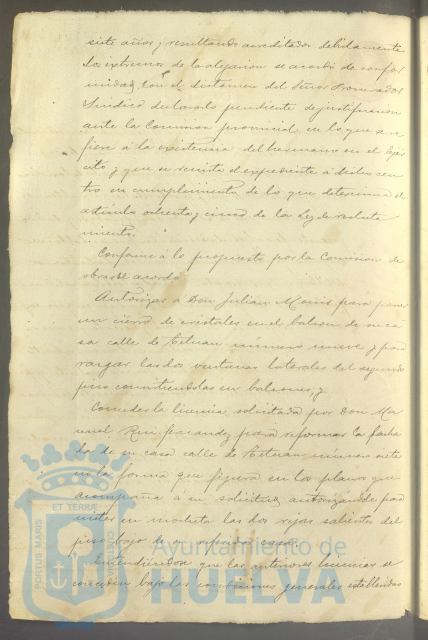 siete años, y resultando acreditados debidamente
los extremos de la alegacion se acordó de confor
midad con el dictamen del Señor Procurador
Sindico declararlo pendiente de justificacion
ante la Comision provincial en lo que se re
fiere á la existencia del hermano en el Ejér
cito y que se remita el expediente á dicho cen
tro en cumplimiento de lo que determina el
artículo ochenta y cinco de la Ley de recluta
miento.
Conforme á lo propuesto por la Comision de
obras se acordó
Autorizar á Don Julian para poner
un cierro de cristales en el balcon de su ca
sa calle de Tetuan número nueve y para
rasgar las dos ventanas laterales del segundo
piso convirtiendolas en balcones, y
Conceder la licencia solicitada por Don Ma
nuel Ruiz Fernandez para reformar la facha
da de su casa calle de Tetuan número siete
en la forma que figura en los planos que
acompaña á su solicitud, autorizandole para
meter en mocheta las dos rejas salientes del
piso bajo de su referida casa.
Entendiéndose que las anteriores licencias se
conceden bajo las condiciones generales establecidas
PORTUS MARIS
ET TERRA
CUSTODIA
Ayuntamiento de
HUELVA